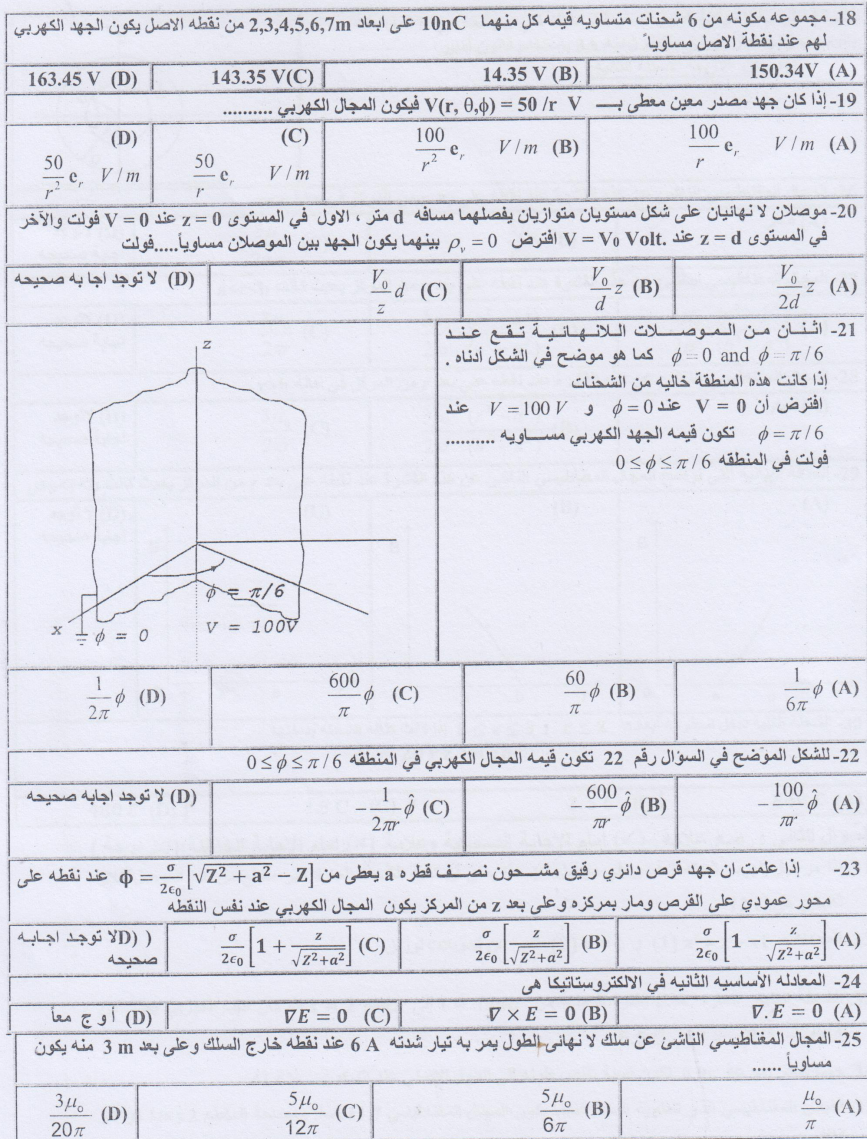 18- مجموعه مكونه من 6 شحنات متساويه قيمه كل منهما 10nC على ابعاد 2,3,4,5,6,7m من نقطه الاصل يكون الجهد الكهربي
لهم عند نقطة الاصل مساوياً
(A) 150.34V (B) 14.35 V (C) 143.35 V (D) 163.45 V
19- إذا كان جهد مصدر معين معطى بـــ V(r, θ,ϕ) = 50 /r V فيكون المجال الكهربي ..........
(A) \frac{100}{r} e_r V/m (B) \frac{100}{r^2} e_r V/m (C) \frac{50}{r} e_r V/m (D) \frac{50}{r^2} e_r V/m
20- موصلان لا نهانيان على شكل مستويان متوازيان يفصلهما مسافه d متر ، الاول في المستوى z = 0 عند V = 0 فولت والآخر
في المستوى z = d عند V = V₀ Volt. افترض ρ_v = 0 بينهما يكون الجهد بين الموصلان مساوياً.....فولت
(A) \frac{V_0}{2d} z (B) \frac{V_0}{d} z (C) \frac{V_0}{z} d (D) لا توجد اجا به صحيحه
21- اثنان من الموصلات اللانهانية تقع عند
ϕ = 0 and ϕ = π/6 كما هو موضح في الشكل أدناه .
إذا كانت هذه المنطقة خاليه من الشحنات
افترض أن V = 0 عند ϕ = 0 و V = 100 V عند
ϕ = π/6 تكون قيمه الجهد الكهربي مساويه ..........
فولت في المنطقه 0 ≤ ϕ ≤ π/6
z
ϕ = π/6
x
ϕ = 0 V = 100V
(A) \frac{1}{6π} ϕ (B) \frac{60}{π} ϕ (C) \frac{600}{π} ϕ (D) \frac{1}{2π} ϕ
22- للشكل الموضح في السؤال رقم 22 تكون قيمه المجال الكهربي في المنطقه 0 ≤ ϕ ≤ π/6
(A) -\frac{100}{πr} \hat{ϕ} (B) -\frac{600}{πr} \hat{ϕ} (C) -\frac{1}{2πr} \hat{ϕ} (D) لا توجد اجابه صحيحه
23- إذا علمت ان جهد قرص دائري رقيق مشحون نصف قطره a يعطى من ϕ = \frac{σ}{2ϵ_0} [\sqrt{Z^2 + a^2} − Z] عند نقطه على
محور عمودي على القرص ومار بمركزه وعلى بعد z من المركز يكون المجال الكهربي عند نفس النقطه
(A) \frac{σ}{2ϵ_0} [1 − \frac{z}{\sqrt{Z^2+a^2}}] (B) \frac{σ}{2ϵ_0} [\frac{z}{\sqrt{Z^2+a^2}}] (C) \frac{σ}{2ϵ_0} [1 + \frac{z}{\sqrt{Z^2+a^2}}] ( (D لا توجد اجابه
صحيحه
24- المعادله الأساسيه الثانيه في الالكتروستاتيكا هى
(A) ∇. E = 0 (B) ∇ × E = 0 (C) ∇E = 0 (D) أ و ج معاً
25- المجال المغناطيسي الناشئ عن سلك لا نهائى الطول يمر به تيار شدته 6 A عند نقطه خارج السلك وعلى بعد 3 m منه يكون
مساوياً ......
(A) \frac{μ_o}{π} (B) \frac{5μ_o}{6π} (C) \frac{5μ_o}{12π} (D) \frac{3μ_o}{20π}